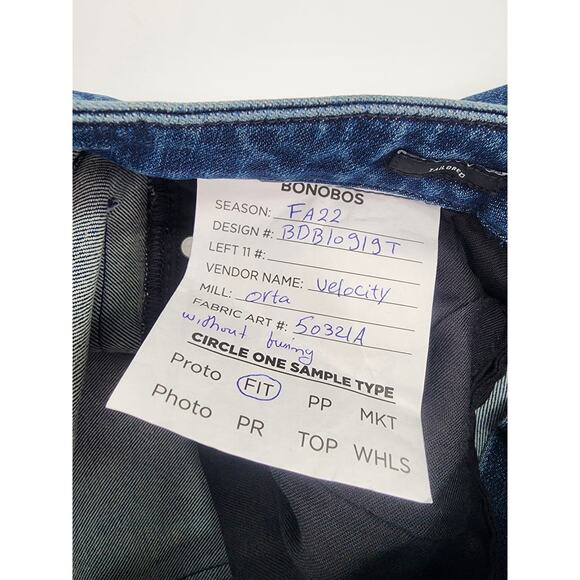 TAILORED
BONOBOS
SEASON: FA22
DESIGN #: BDB10919T
LEFT 11 #:
VENDOR NAME: Velocity
MILL: Orta
FABRIC ART #: 50321A
without
CIRCLE ONE SAMPLE TYPE
Proto FIT PP MKT
Photo PR TOP WHLS